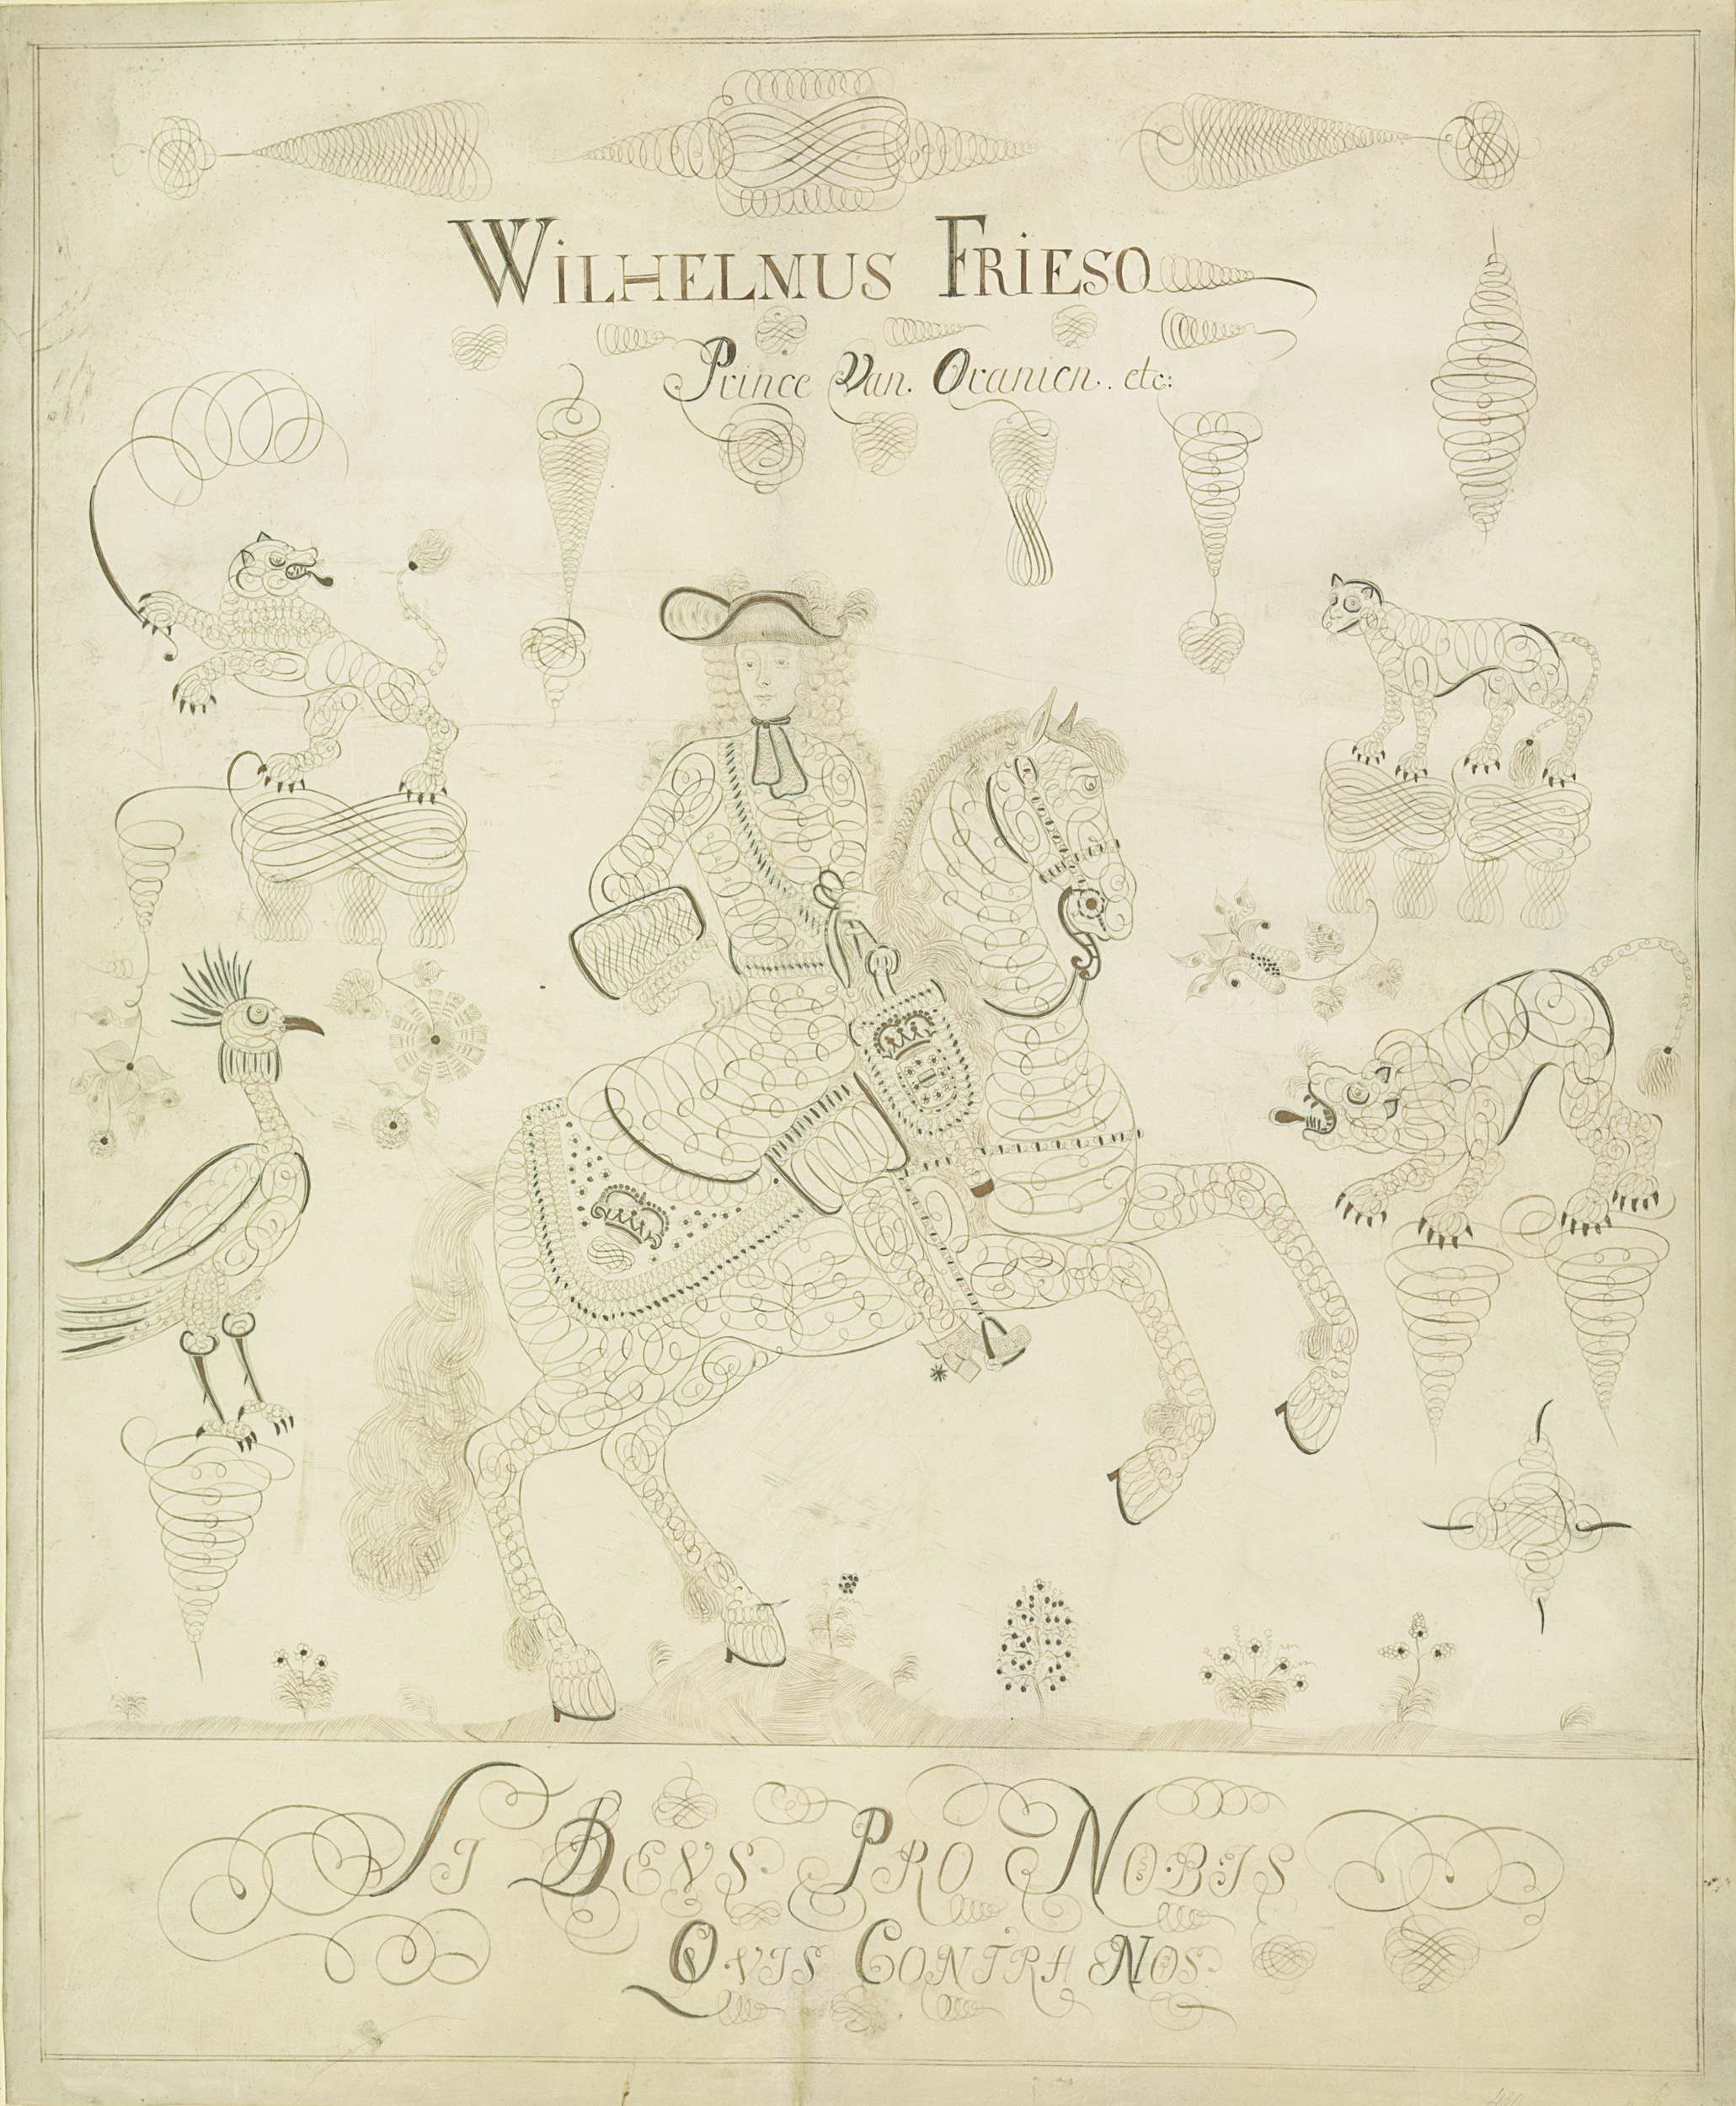 WiLHELMUS FRiESO
Prince Van. Oranien.. etc:
SI DEVS PRO NOBIS
QVIS CONTRA NOS